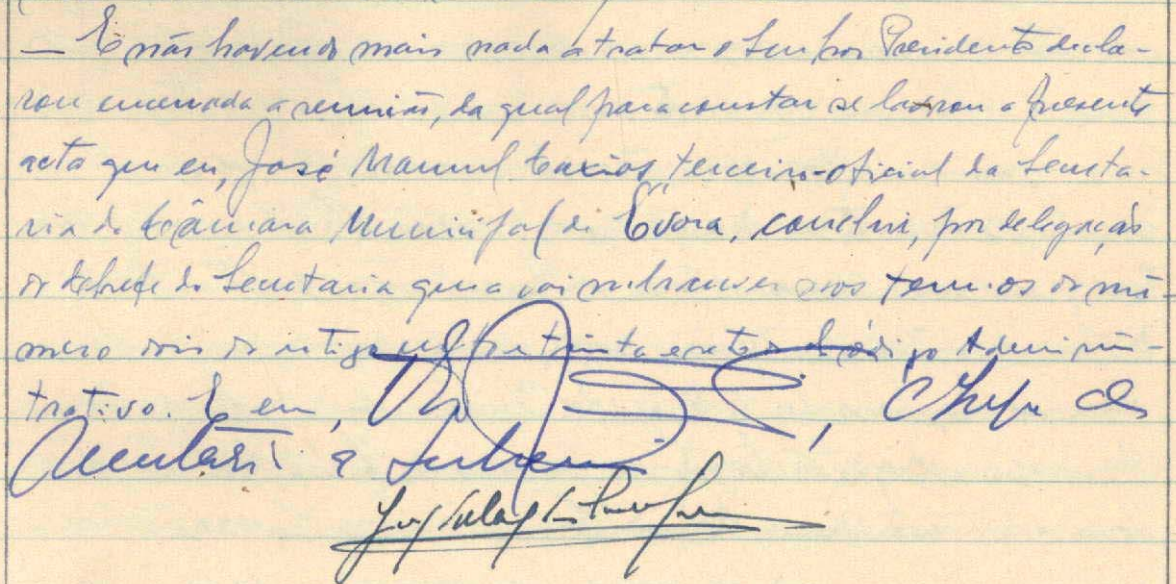 — E não havendo mais nada a tratar o Senhor Presidente decla-
rou encerrada a reunião, da qual para constar se lavrou a presente
acta que eu, José Manuel Caxias, terceiro-oficial da Secreta-
ria da Câmara Municipal de Évora, conclui, por delegação
do Chefe da Secretaria que a vai subscrever nos termos do nú-
mero dois do artigo cento trinta e sete do Código Adminis-
trativo. E eu, , Chefe da
Secretaria a subscrevi